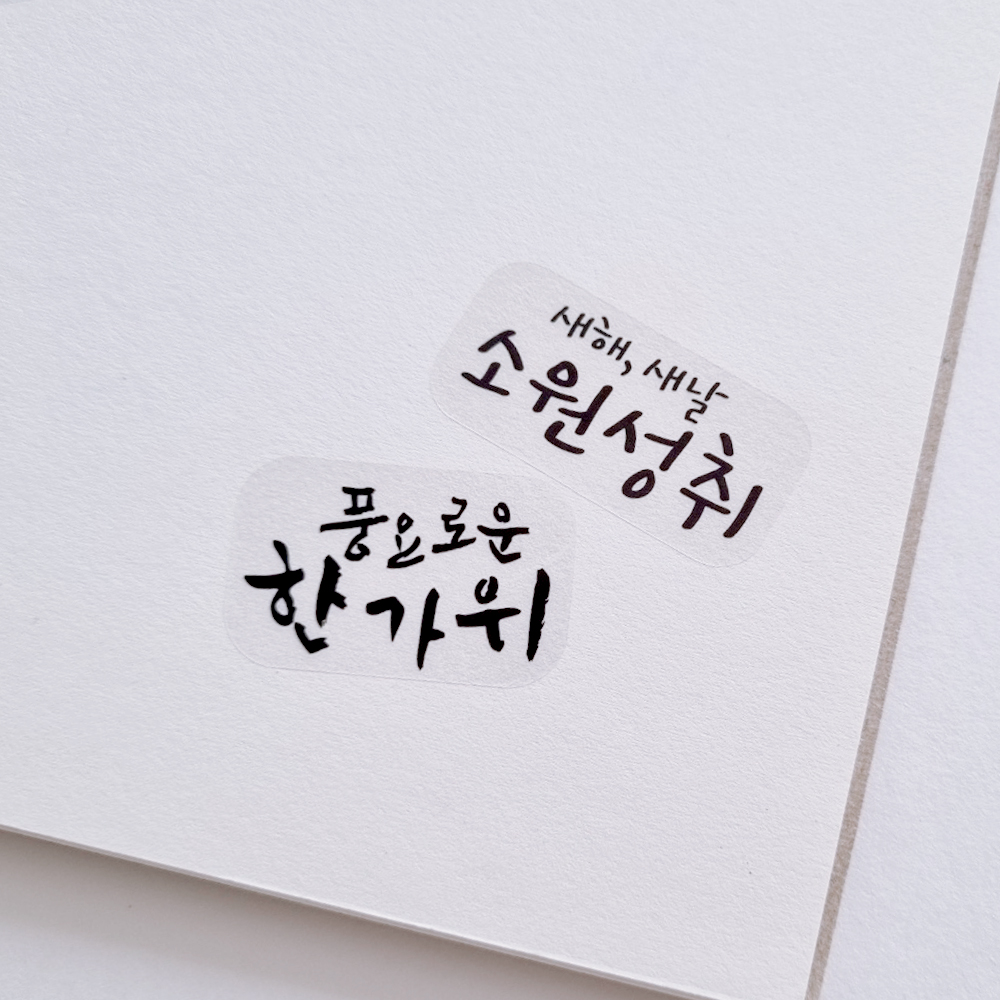 새해, 새날
소원성취
풍요로운
한가위